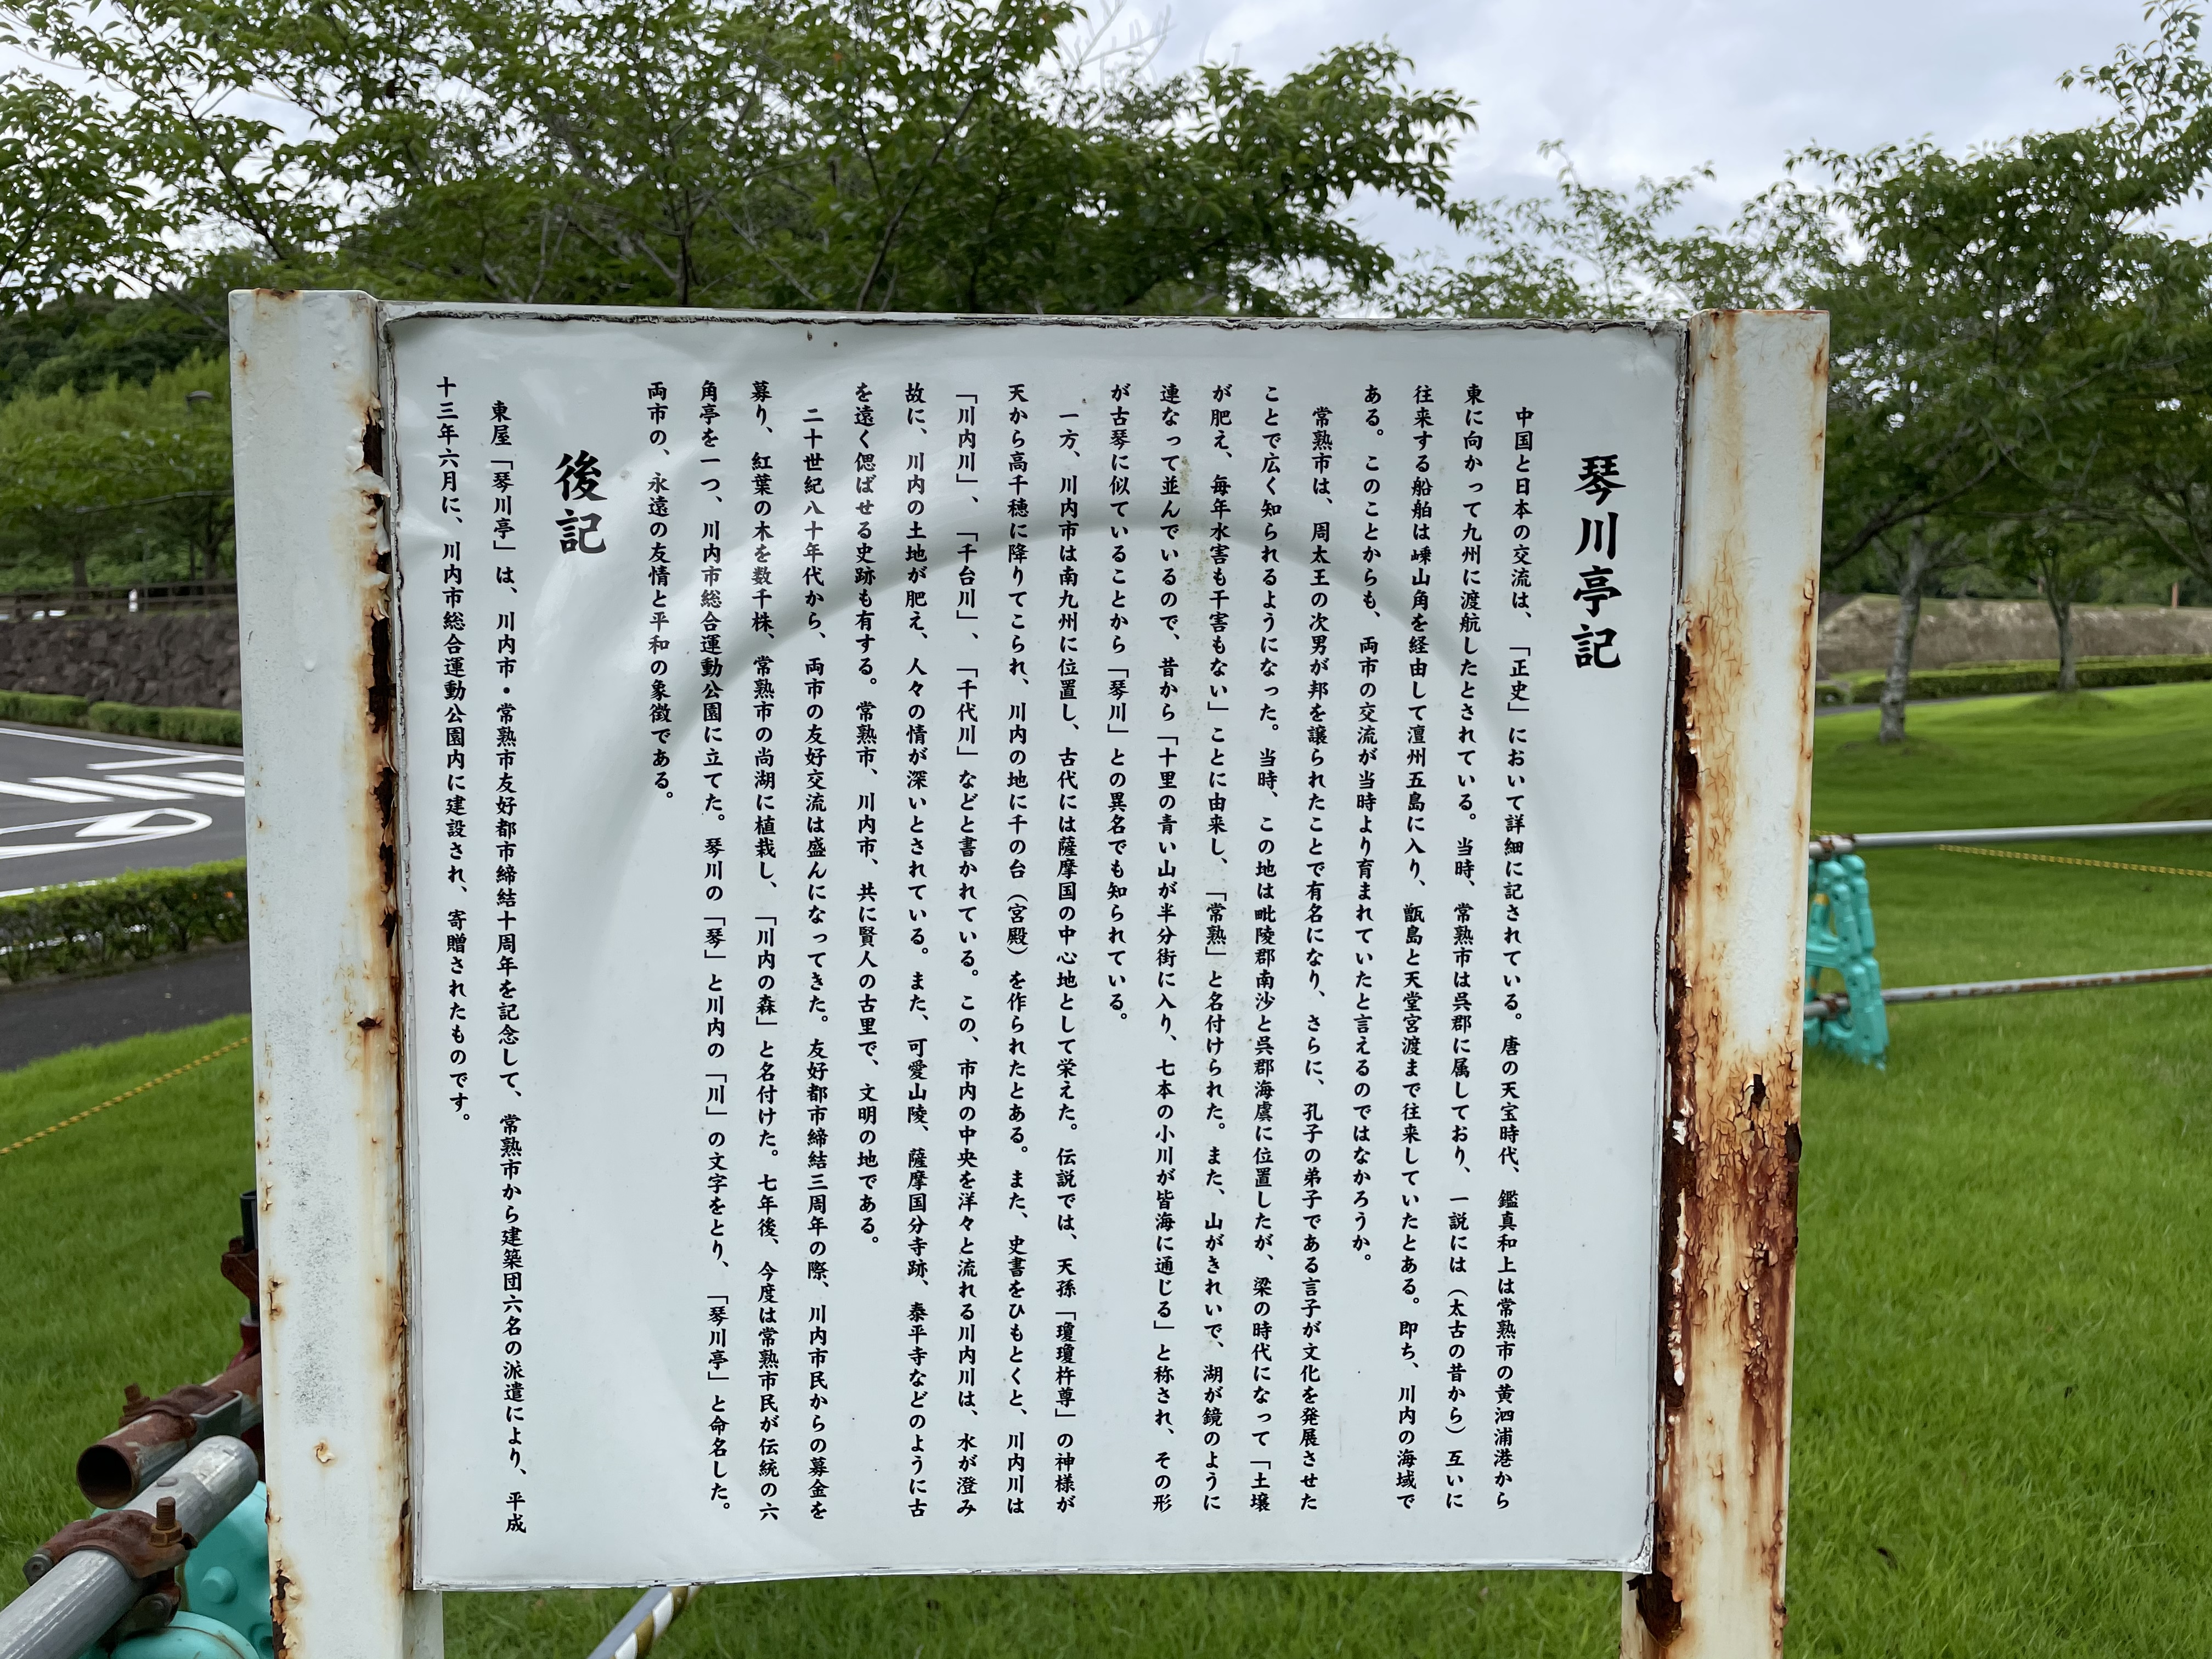 琴川亭記
中国と日本の交流は、「正史」において詳細に記されている。唐の天宝時代、鑑真和上は常熟市の黄泗浦港から
東に向かって九州に渡航したとされている。当時、常熟市は呉郡に属しており、一説には（太古の昔から）互いに
往来する船舶は嵊山角を経由して澶州五島に入り、甑島と天堂宮渡まで往来していたとある。即ち、川内の海域で
ある。このことからも、両市の交流が当時より育まれていたと言えるのではなかろうか。
常熟市は、周太王の次男が邦を譲られたことで有名になり、さらに、孔子の弟子である言子が文化を発展させた
ことで広く知られるようになった。当時、この地は毗陵郡南沙と呉郡海虞に位置したが、梁の時代になって「土壌
が肥え、毎年水害も干害もない」ことに由来し、「常熟」と名付けられた。また、山がきれいで、湖が鏡のように
連なって並んでいるので、昔から「十里の青い山が半分街に入り、七本の小川が皆海に通じる」と称され、その形
が古琴に似ていることから「琴川」との異名でも知られている。
一方、川内市は南九州に位置し、古代には薩摩国の中心地として栄えた。伝説では、天孫「瓊瓊杵尊」の神様が
天から高千穂に降りてこられ、川内の地に千の台（宮殿）を作られたとある。また、史書をひもとくと、川内川は
「川内川」、「千台川」、「千代川」などと書かれている。この、市内の中央を洋々と流れる川内川は、水が澄み
故に、川内の土地が肥え、人々の情が深いとされている。また、可愛山陵、薩摩国分寺跡、泰平寺などのように古
を遠く偲ばせる史跡も有する。常熟市、川内市、共に賢人の古里で、文明の地である。
二十世紀八十年代から、両市の友好交流は盛んになってきた。友好都市締結三周年の際、川内市民からの募金を
募り、紅葉の木を数千株、常熟市の尚湖に植栽し、「川内の森」と名付けた。七年後、今度は常熟市民が伝統の六
角亭を一つ、川内市総合運動公園に立てた。琴川の「琴」と川内の「川」の文字をとり、「琴川亭」と命名した。
両市の、永遠の友情と平和の象徴である。
後記
東屋「琴川亭」は、川内市・常熟市友好都市締結十周年を記念して、常熟市から建築団六名の派遣により、平成
十三年六月に、川内市総合運動公園内に建設され、寄贈されたものです。